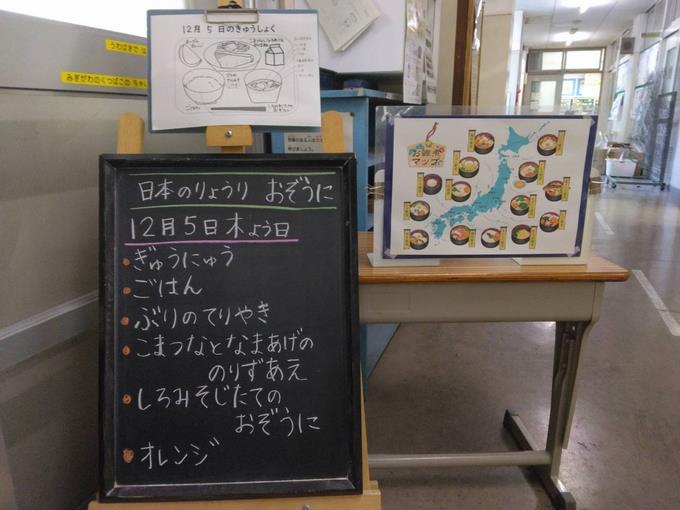 うわばきで は
みぎがわのくつばこの
12月 5日のきゅうしょく
ごはん
日本のりょうり おぞうに
12月5日木よう日
ぎゅうにゅう
ごはん
ぶりのてりやき
こまつなとなまあげの
のりずあえ
しろみそじたての
おぞうに
オレンジ
お雑煮
マップ